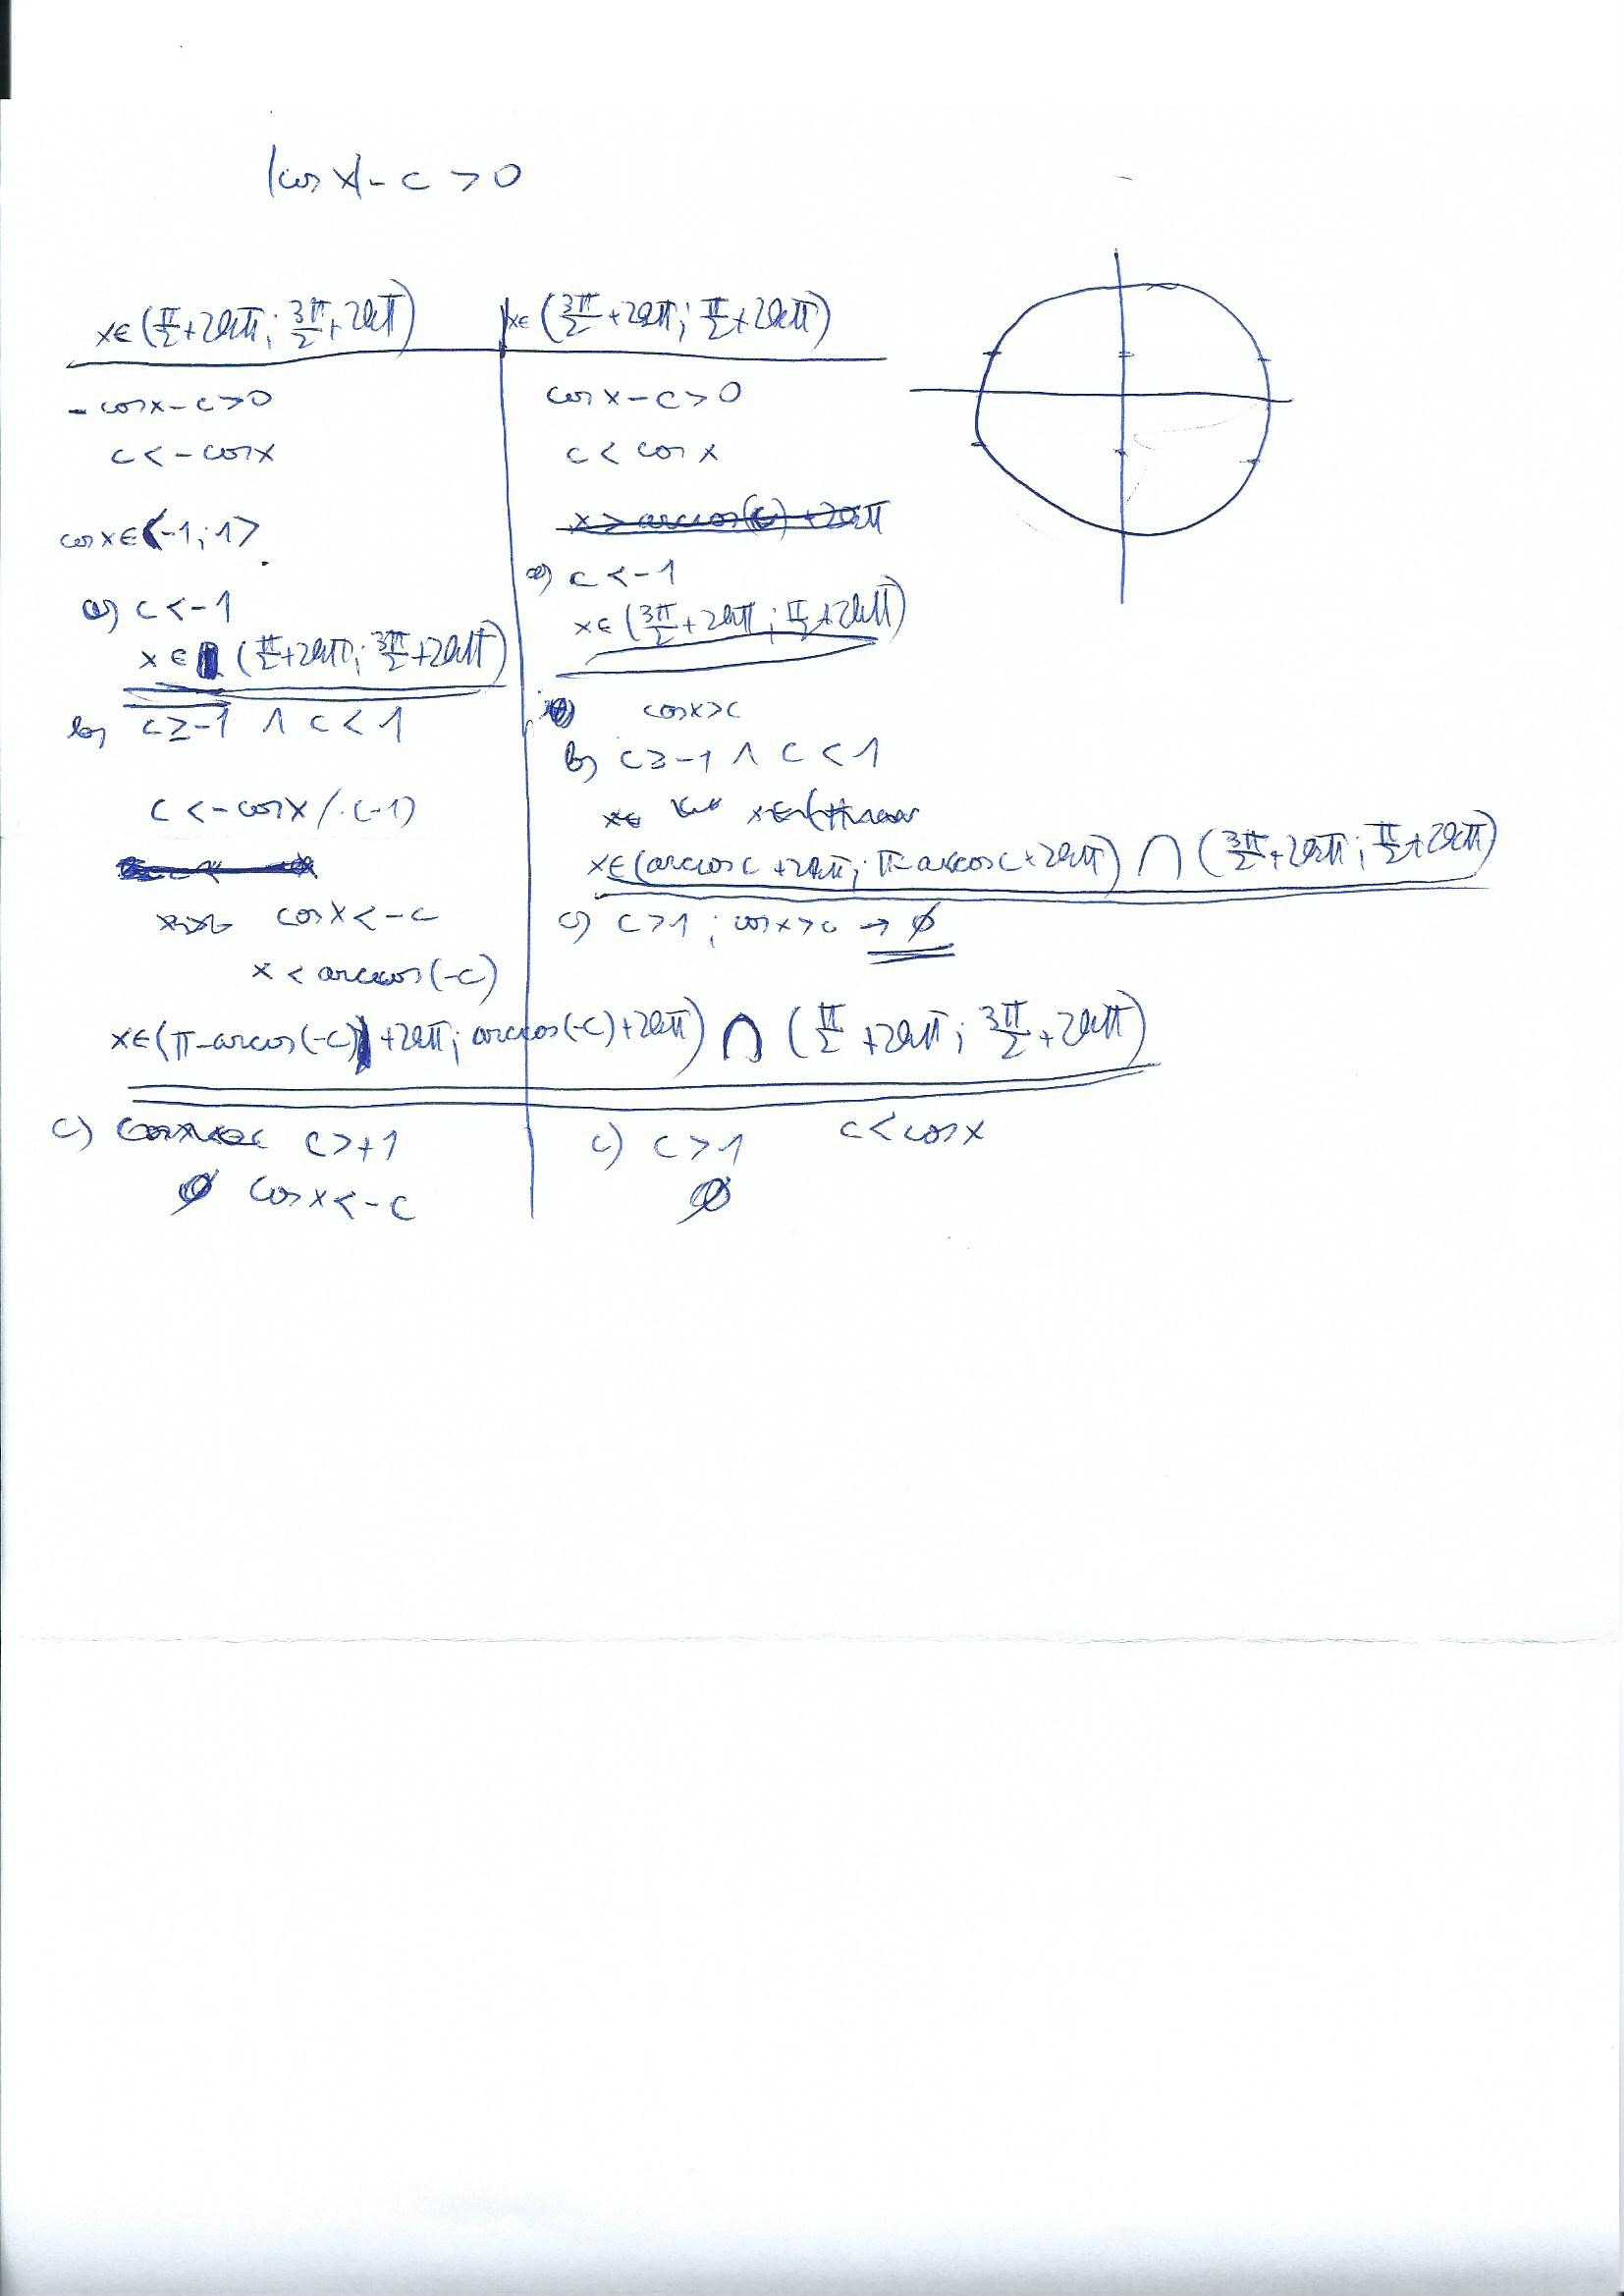 |cos x| - c > 0
x∈(π/2+2kπ; 3π/2+2kπ)
- cosx - c > 0
c < - cosx
cosx∈<-1; 1>
a) c < -1
x∈ (π/2+2kπ; 3π/2+2kπ)
b) c ≥ -1 ∧ c < 1
c < - cosx /·(-1)
cosx < -c
x < arccos(-c)
x∈(π-arccos(-c)+2kπ; arccos(-c)+2kπ) ∩ (π/2+2kπ; 3π/2+2kπ)
c) c > +1
∅ cosx < -c
x∈(3π/2+2kπ; π/2+2kπ)
cosx - c > 0
c < cosx
x > arccos(c)+2kπ
a) c < -1
x∈(3π/2+2kπ; π/2+2kπ)
cosx > c
b) c ≥ -1 ∧ c < 1
x∈(arccosc+2kπ; π-arccosc+2kπ) ∩ (3π/2+2kπ; π/2+2kπ)
c) c > 1; cosx > c → ∅
c) c > 1 c < cosx
∅